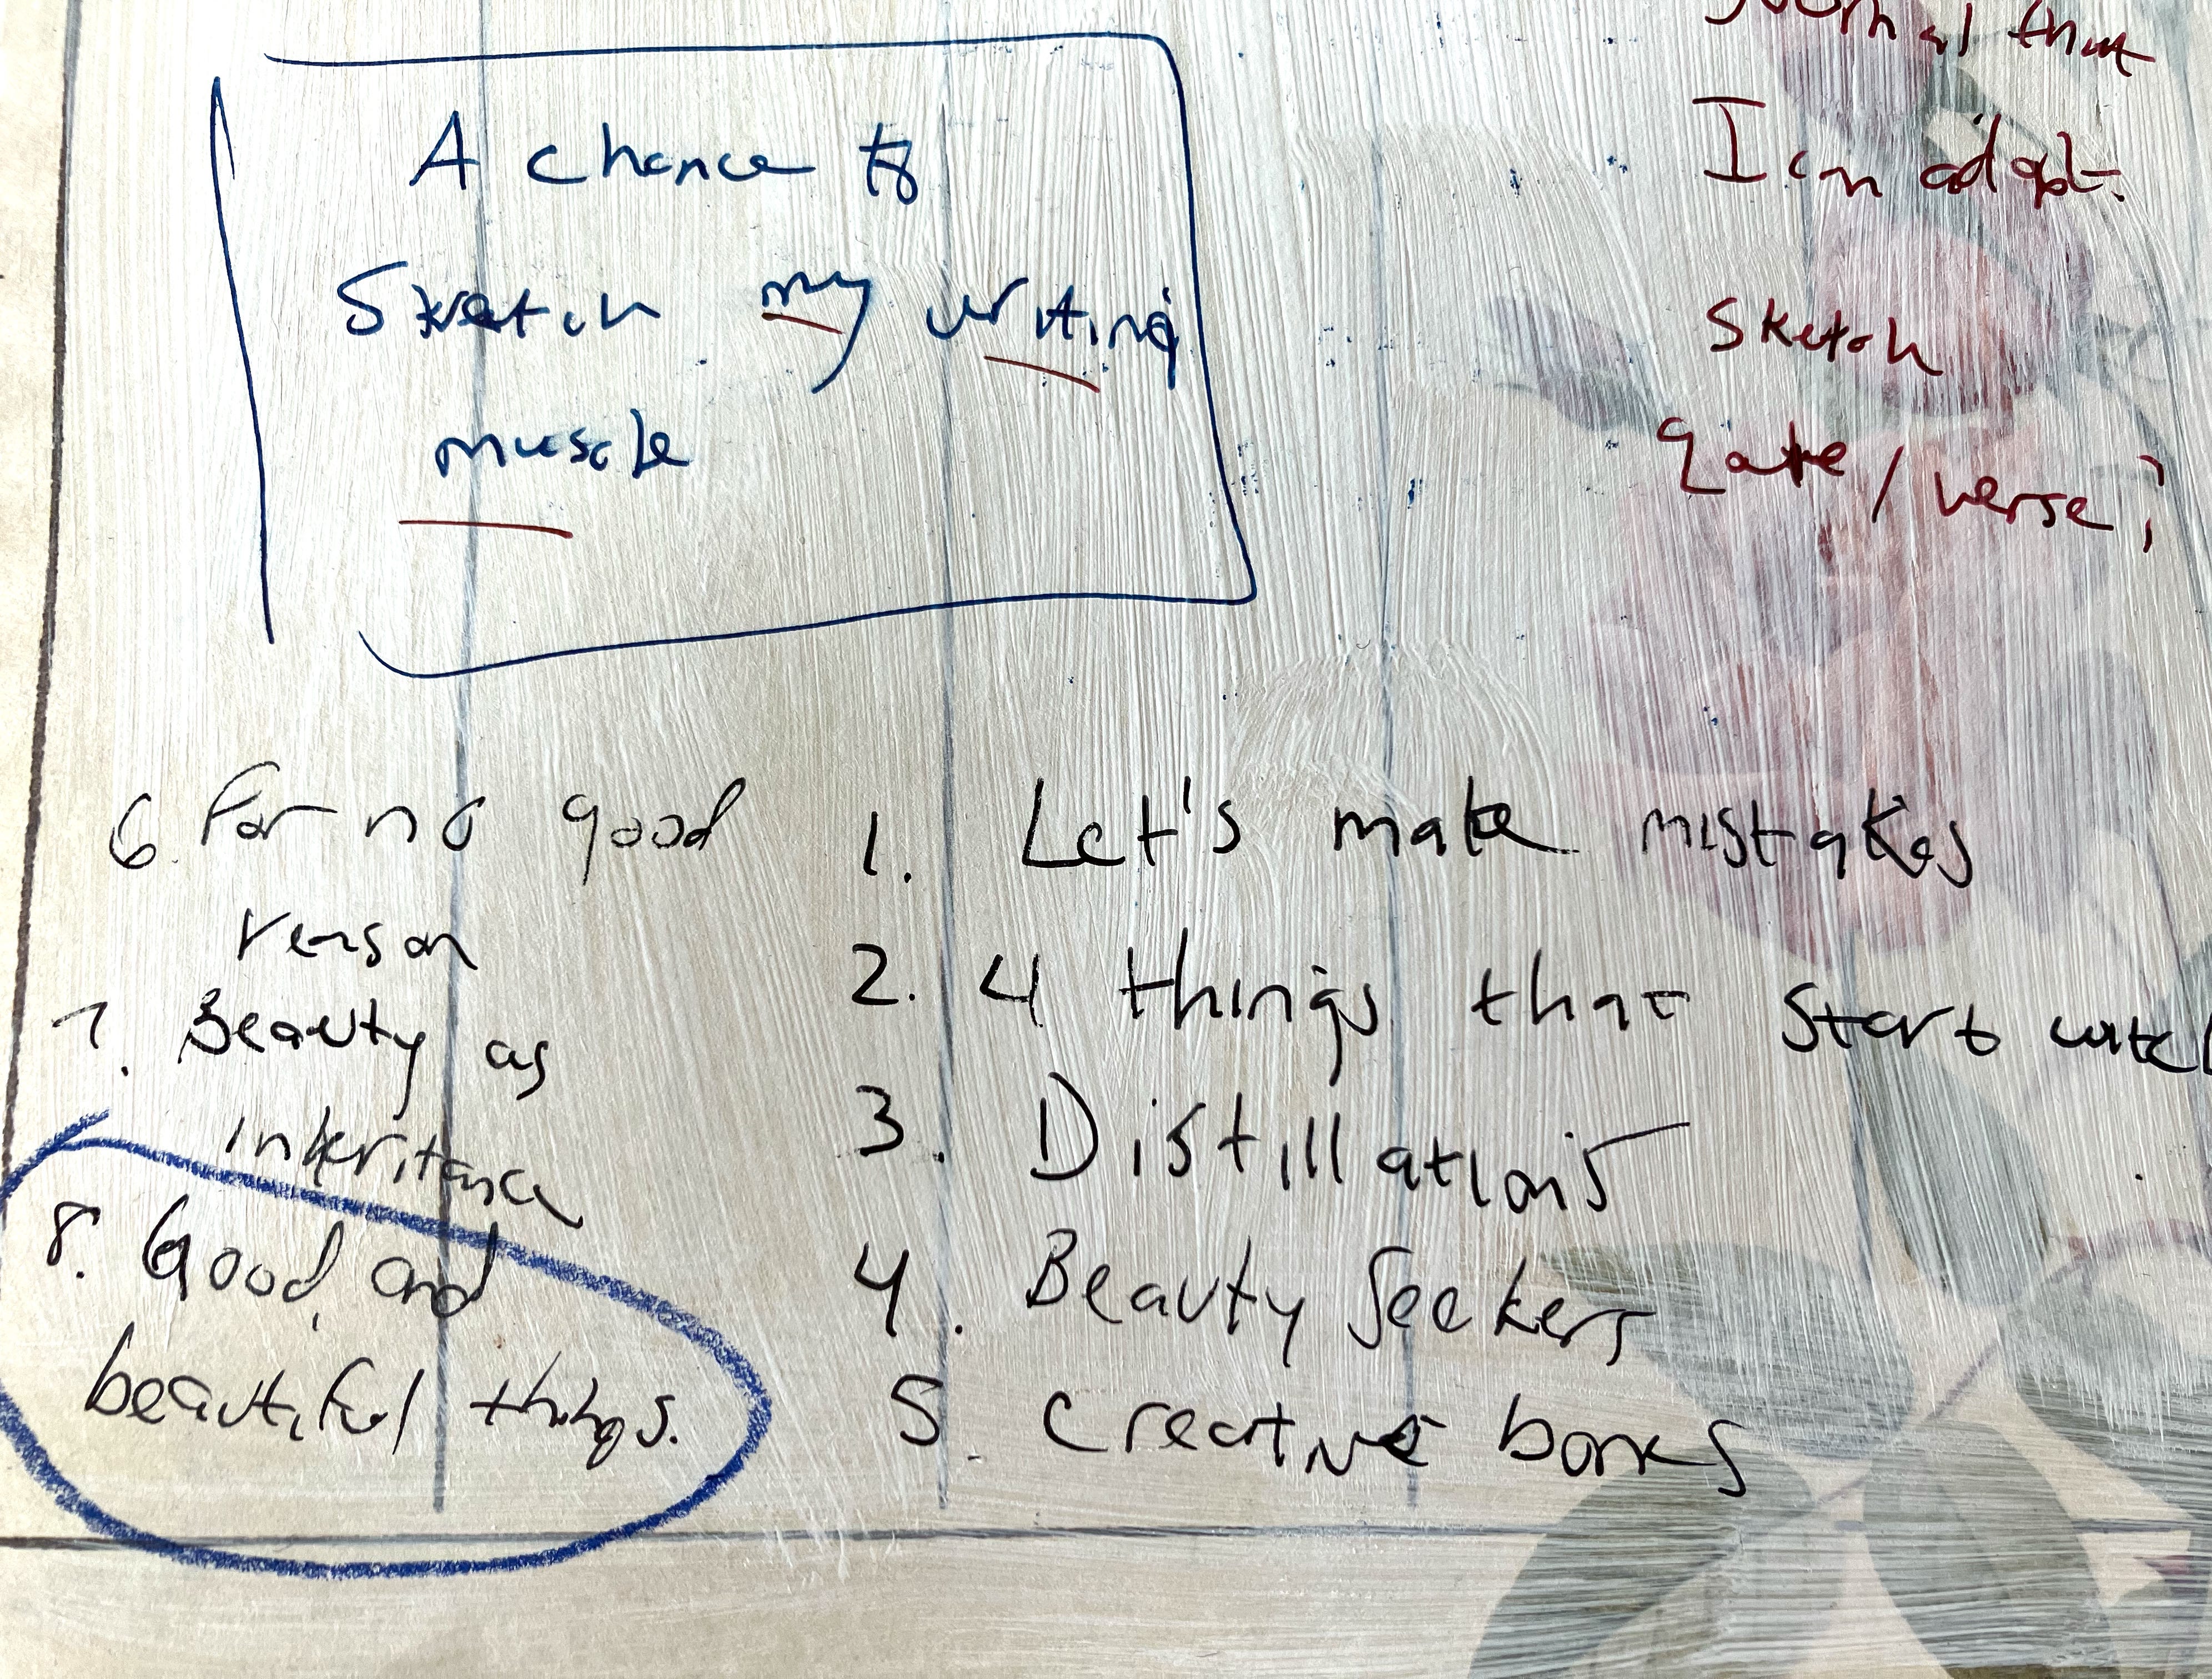 A chance to
Sketch my writing
muscle
Journal that
I can adapt.
Sketch
quote / verse ;
6. For no good
reason
7. Beauty as
inheritance
8. Good and
beautiful things.
1. Let's make mistakes
2. 4 things that start with
3. Distillations
4. Beauty Seekers
5. Creative bones